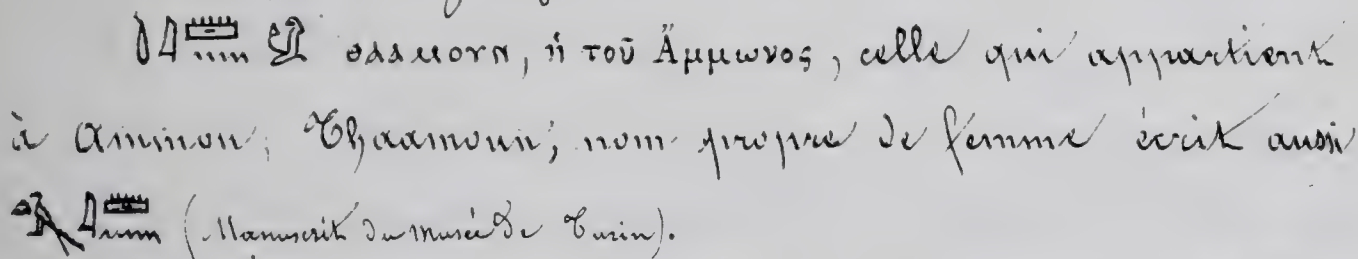 ⲑⲁⲁⲙⲟⲩⲛ, ἡ τοῦ Ἄμμωνος, celle qui appartient
à Ammon; Thaamoun; nom propre de femme écrit aussi
(Manuscrit du musée de Turin).